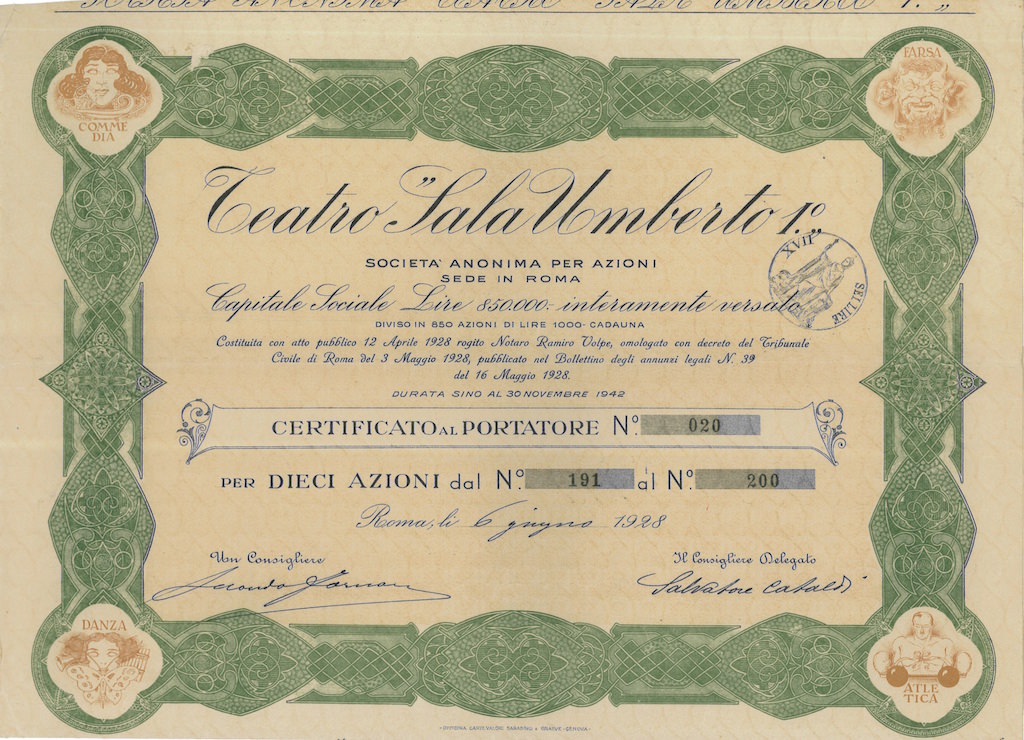 COMME
DIA
FARSA
Teatro "Sala Umberto 1.º"
SOCIETA' ANONIMA PER AZIONI
SEDE IN ROMA
Capitale Sociale Lire 850.000.- interamente versato
DIVISO IN 850 AZIONI DI LIRE 1000- CADAUNA
XVII
SEI LIRE
Costituita con atto pubblico 12 Aprile 1928 rogito Notaro Ramiro Volpe, omologato con decreto del Tribunale
Civile di Roma del 3 Maggio 1928, pubblicato nel Bollettino degli annunzi legali N. 39
del 16 Maggio 1928.
DURATA SINO AL 30 NOVEMBRE 1942
CERTIFICATO AL PORTATORE Nº. 020
PER DIECI AZIONI dal Nº. 191 al Nº. 200
Roma, li 6 giugno 1928
Un Consigliere
Il Consigliere Delegato
Salvatore Cataldi
DANZA
ATLE
TICA